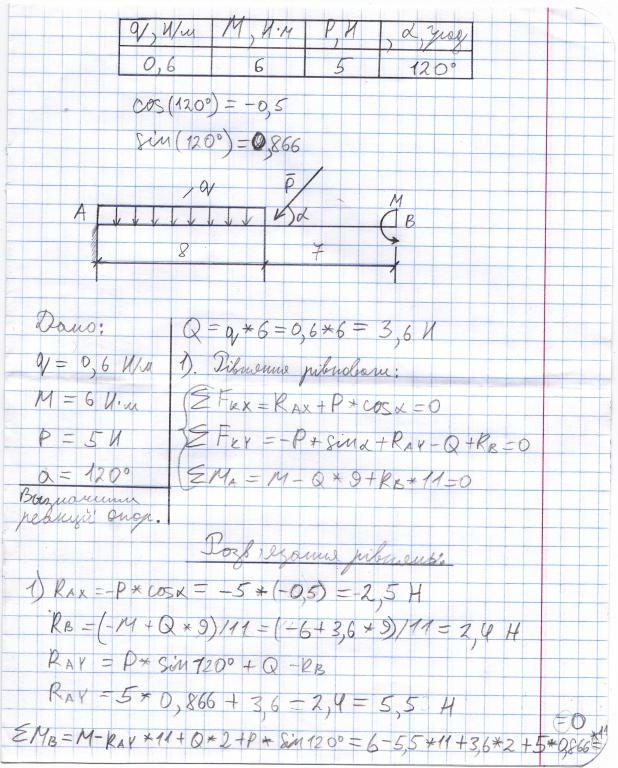 q, Н/м M, Н·м P, Н , α, град
0,6 6 5 120°
cos(120°) = -0,5
sin(120°) = 0,866
q
P̅
A
α
M
B
8
7
Дано:
q = 0,6 Н/м
M = 6 Н·м
P = 5 Н
α = 120°
Визначити
реакції опор.
Q = q*6 = 0,6*6 = 3,6 Н
1). Рівняння рівноваги:
ΣFкх = RAX + P*cosα = 0
ΣFкY = -P*sinα + RAY - Q + RB = 0
ΣMA = M - Q*9 + RB*11 = 0
Розв'язання рівнянь:
1) RAX = -P*cosα = -5*(-0,5) = -2,5 Н
RB = (-M + Q*9)/11 = (-6 + 3,6*9)/11 = 2,4 Н
RAY = P*sin120° + Q - RB
RAY = 5*0,866 + 3,6 = 2,4 = 5,5 Н
ΣMB = M - RAY*11 + Q*2 + P*sin120° = 6 - 5,5*11 + 3,6*2 + 5*0,866*11 =
= 0